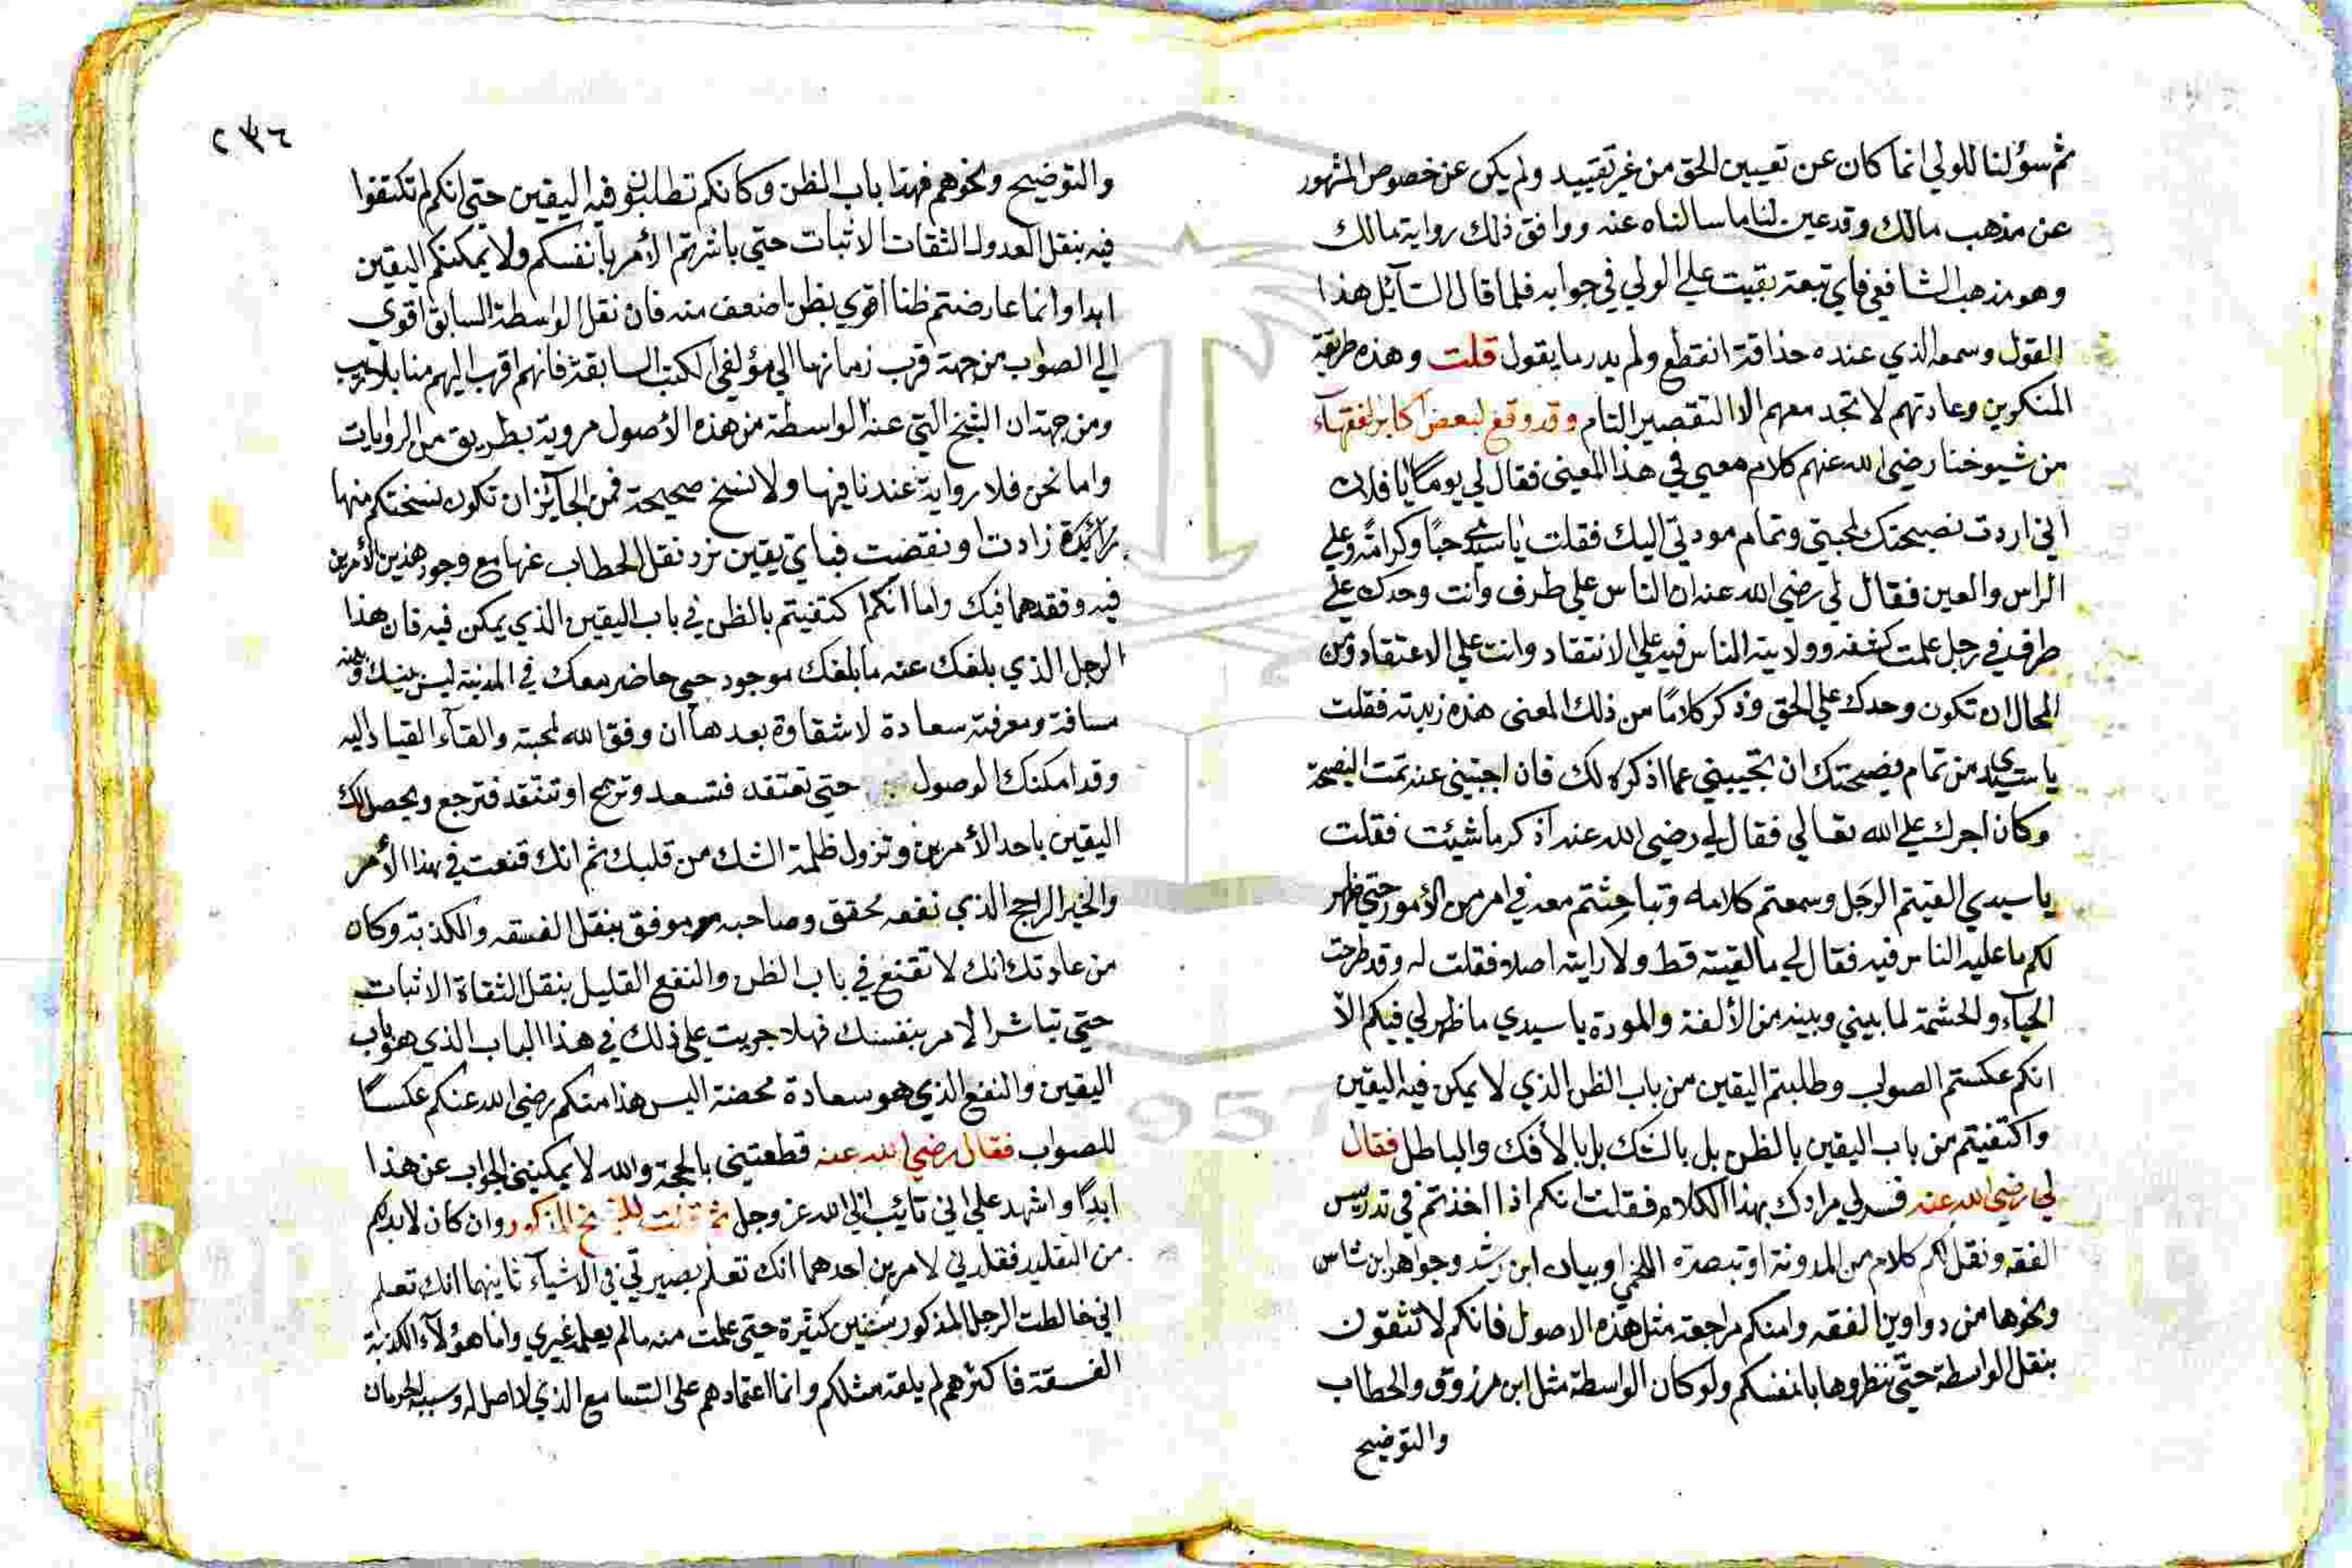 ثم سؤلنا للولي انما كان عن تعيين الحق من غير تقييد ولم يكن عن خصوص المشهور
عن مذهب مالك وقد عين لنا ما سالناه عنه ووافق ذلك رواية مالك
وهو مذهب الشافعي فاي تبعة بقيت علي الولي في جوابه فلما قال السائل هذا
القول وسمعه الذي عنده حذاقة انقطع ولم يدر ما يقول قلت وهذه طريقة
المنكرين وعادتهم لا تجد معهم الا التقصير التام وقد وقع لبعض اكابر الفقهآء
من شيوخنا رضي الله عنهم كلام معي في هذا المعني فقال لي يومًا يا فلان
اني اردت نصيحتك لمحبتي وتمام مودتي اليك فقلت يا سيدي حبًا وكرامة وعلي
الراس والعين فقال لي رضي الله عنه ان الناس علي طرف وانت وحدك علي
طرف في رجل علمت كشفه وولايته الناس فيه علي الانتقاد وانت علي الاعتقاد ومن
المحال ان تكون وحدك علي الحق وذكر كلامًا من ذلك المعني هذه زبدته فقلت
يا سيدي من تمام نصيحتك ان تجيبني عما اذكره لك فان اجبتني عنه تمت النصيحة
وكان اجرك علي الله تعالي فقال لي رضي الله عنه اذكر ما شيئت فقلت
يا سيدي القيتم الرجل وسمعتم كلامه وتباحثتم معه في امر من الأمور حتي ظهر
لكم ما عليه الناس فيه فقال لي ما لقيته قط ولا رايته اصلا فقلت له وقد طرحت
الحيآء والحشمة لما بيني وبينه من الألفة والمودة يا سيدي ما ظهر لي فيكم الا
انكم عكستم الصواب وطلبتم اليقين من باب الظن الذي لا يمكن فيه اليقين
واكتفيتم من باب اليقين بالظن بل بالشك بل بالأفك والباطل فقال
لي رضي الله عنه فسر لي مرادك بهذا الكلام فقلت انكم اذا اخذتم في تدريس
الفقه ونقل لكم كلام من المدونة او تبصرة اللخمي او بيان ابن رشد وجواهر ابن شاس
ونحوها من دواوين الفقه وامنكم مراجعة مثل هذه الاصول فانكم لا تثقون
بنقل الواسطة حتي تنظروها بانفسكم ولو كان الواسطة مثل ابن مرزوق والحطاب
والتوضيح
٢٣٦
والتوضيح ونحوهم فهذا باب الظن وكانكم تطالبو فيه اليقين حتي انكم لم تكتفوا
فيه بنقل العدول الثقات الاثبات حتي باشرتم الأمر بانفسكم ولا يمكنكم اليقين
ابدا وانما عارضتم ظنا اقوي بظن اضعف منه فان نقل الواسطة السابق اقوي
الي الصواب من جهة قرب زمانها الي مؤلفي الكتب السابقة فانهم اقرب اليهم منا بلا ريب
ومن جهة ان النسخ التي عند الواسطة من هذه الأصول مروية بطريق من الروايات
واما نحن فلا رواية عندنا فيها ولا نسخ صحيحة فمن الجائز ان تكون نسختكم منها
زائدة زادت او نقضت فباي يقين نرد نقل الحطاب عنها مع وجود هذين الأمرين
فيه وفقدهما فيك واما انكم اكتفيتم بالظن في باب اليقين الذي يمكن فيه فان هذا
الرجل الذي بلغك عنه ما بلغك موجود حي حاضر معك في المدينة ليس بينك وبينه
مسافة ومعرفته سعادة لا شقاوة بعدها ان وفق الله لمحبته والقآء القياد اليه
وقد امكنك الوصول حتي تعتقد فتسعد وتربح او تنتقد فترجع ويحصل لك
اليقين باحد الأمرين وتزول ظلمة الشك من قلبك ثم انك قنعت في هذا الأمر
والخير الراجح الذي نفعه محقق وصاحبه موفق بنقل الفسقه والكذبة وكان
من عادتك انك لا تقنع في باب الظن والنفع القليل بنقل الثقاة الاثبات
حتي تباشر الامر بنفسك فهلا جريت علي ذلك في هذا الباب الذي هو باب
اليقين والنفع الذي هو سعادة محضة اليس هذا منكم رضي الله عنكم عكسًا
للصواب فقال رضي الله عنه قطعتني بالحجة والله لا يمكينني الجواب عن هذا
ابدًا واشهد علي اني تائب الي الله عز وجل ثم قلت للشيخ المذكور وان كان لا بد لكم
من التقليد فقلدني لامرين احدهما انك تعلم بصيرتي في الاشيآء ثانيهما انك تعلم
اني خالطت الرجل المذكور سنين كثيرة حتي علمت منه ما لم يعلمه غيري واما هؤلآء الكذبة
الفسقة فاكثرهم لم يلقه مثلكم وانما اعتمادهم علي التسامع الذي لا اصل له وسببه الحرمان